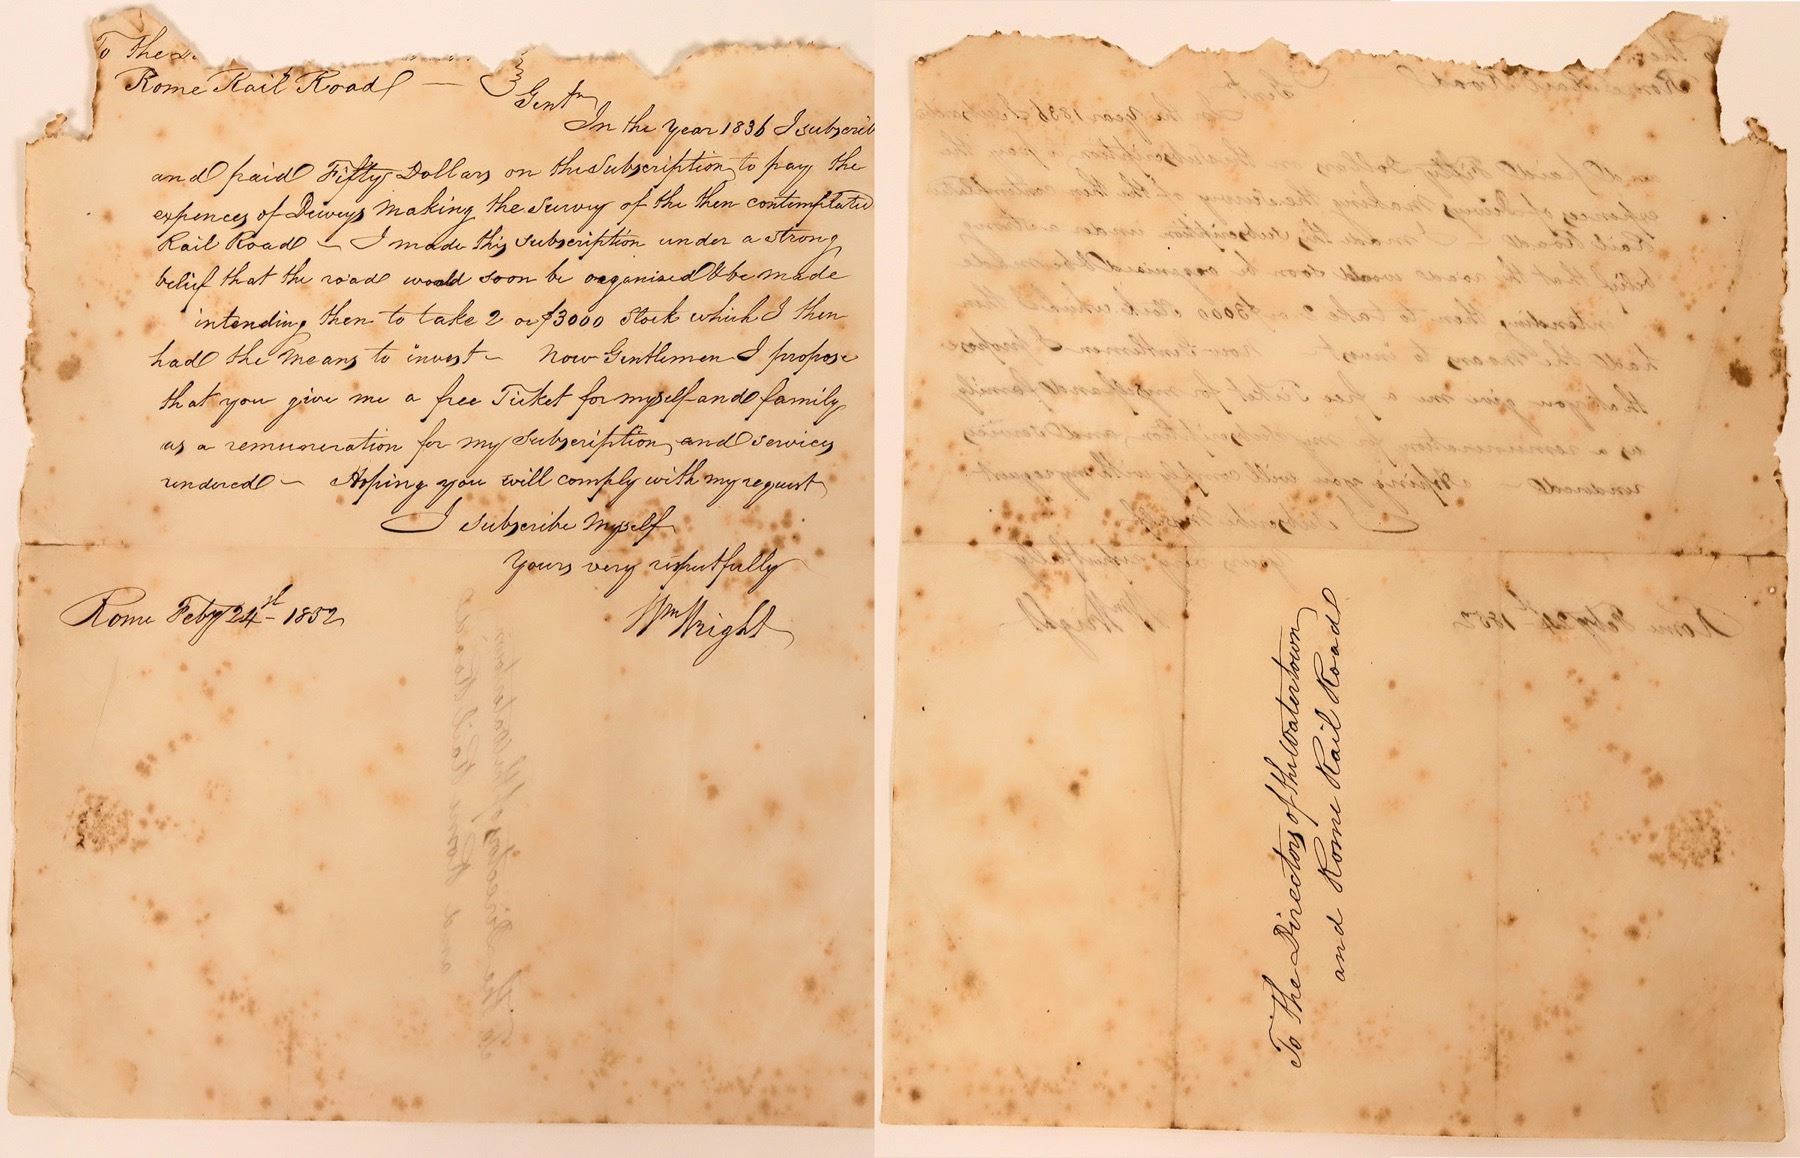 To The
Rome Rail Road —
Gentn
In the Year 1836 I subscrib
and paid Fifty Dollars on the Subscription to pay the
expences of Deweys making the survey of the then contemplated
Rail Road – I made this subscription under a strong
belief that the road would soon be organised & be made
intending then to take 2 or $3000 Stock which I then
had the means to invest – Now Gentlemen I propose
that you give me a free Ticket for myself and family
as a remuneration for my subscription and services
rendered – Hoping you will comply with my request
I subscribe myself
Yours very respectfully
Wm Wright
Rome Feby 24st 1852
To The Directors of the Watertown
and Rome Rail Road